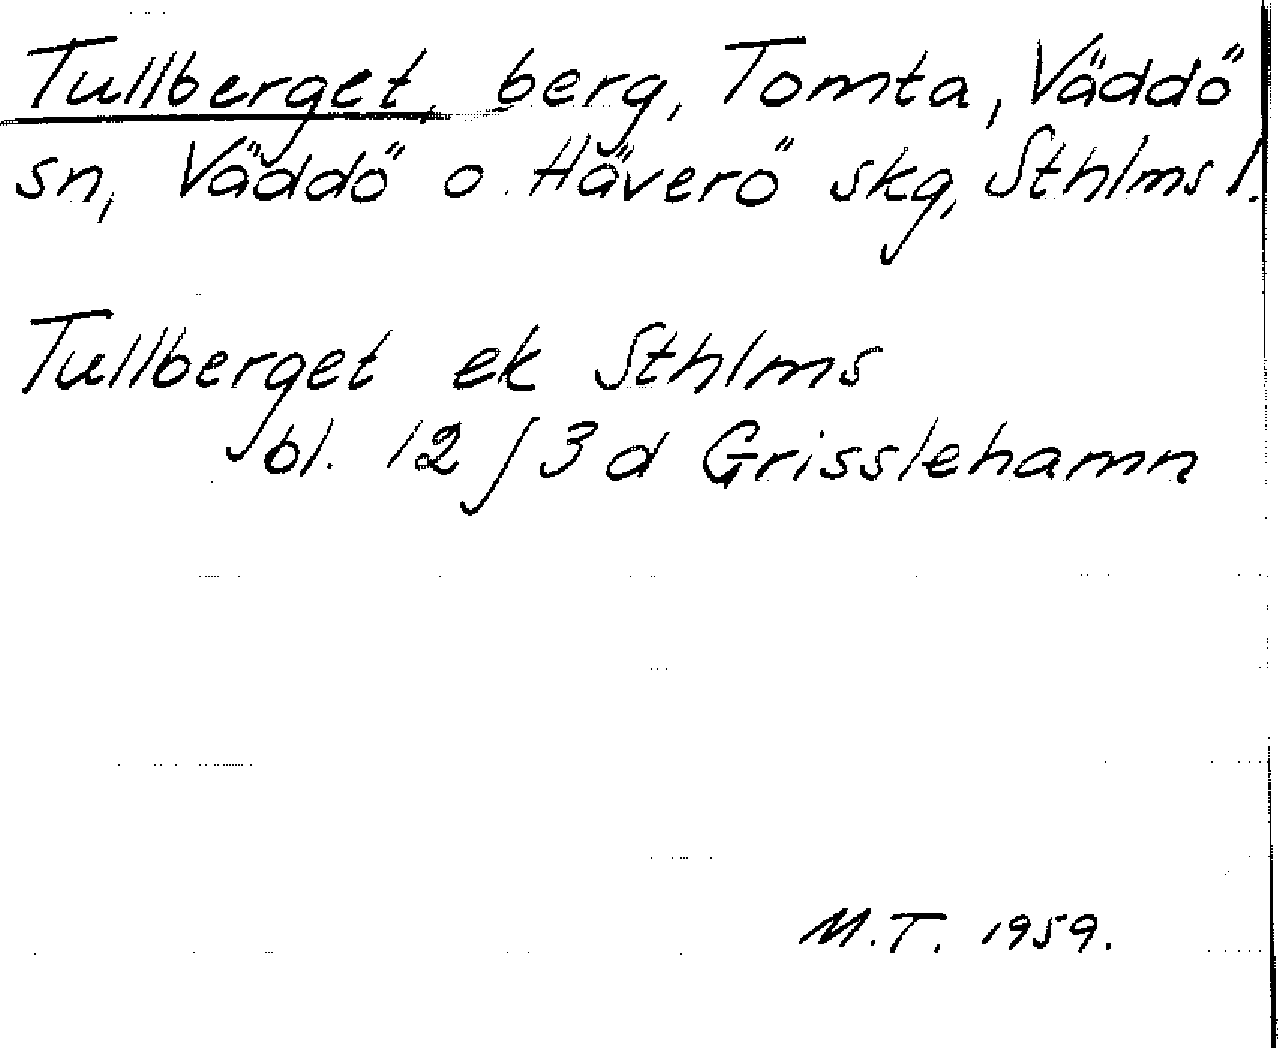 Tullberget, berg, Tomta, Väddö
sn, Väddö o. Häverö skg, Sthlms l.
Tullberget ek Sthlms
bl. 12 J 3 d Grisslehamn
M.T. 1959.